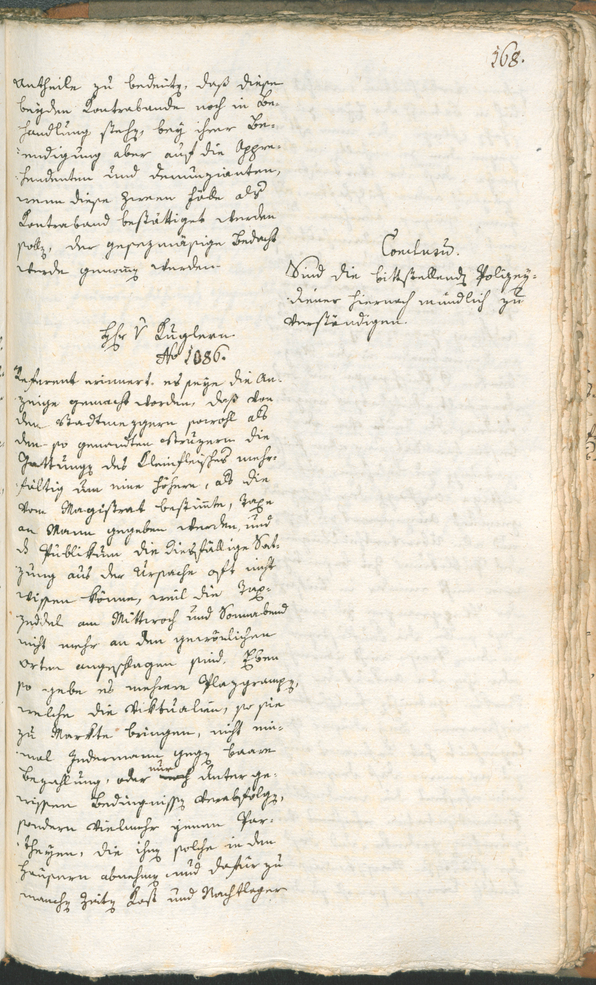 168.
Antheile zu bedeuten, daß diese
beyden Kontrabande noch in Be-
handlung stehen, bey ihrer Be-
endigung aber auf die Appre-
hendenten und Denunzianten,
wenn diese zween Fälle als
Kontraband bestättiget werden
sollten, der gesezmäsige Bedacht
werde genommen werden.
Conclusum.
Sind die bittstellenden Polizey-
diener hiernach mündlich zu
verständigen.
Hr. v Kuglern.
No 1086.
Referent erinnert. es seye die An-
zeige gemacht worden, daß von
den Stadtmezgern sowohl als
den so genannten die
Gattungen des Kleinfleisches mehr-
fältig um eine höhere, als die
vom Magistrat bestimmte, Taxe
an Mann gegeben werden, und
das Publikum die diesfällige Sat-
zung aus der Ursache oft nicht
wissen könne, weil die Tax-
zeddel am Mittwoch und Sonnabend
nicht mehr an den gewönlichen
Orten angeschlagen sind. Eben
so gebe es mehrere
welche die Viktualien, so sie
zu Markte bringen, nicht ein-
mal Jedermann gegen baare
Bezahlung, oder nur unter ge-
wissen Bedingnissen verabfolgen,
sondern vielmehr jenen Par-
theyen, die ihnen solche in den
Häusern abnehmen und dafür zu
manchen Zeiten Kost und Nachtlager